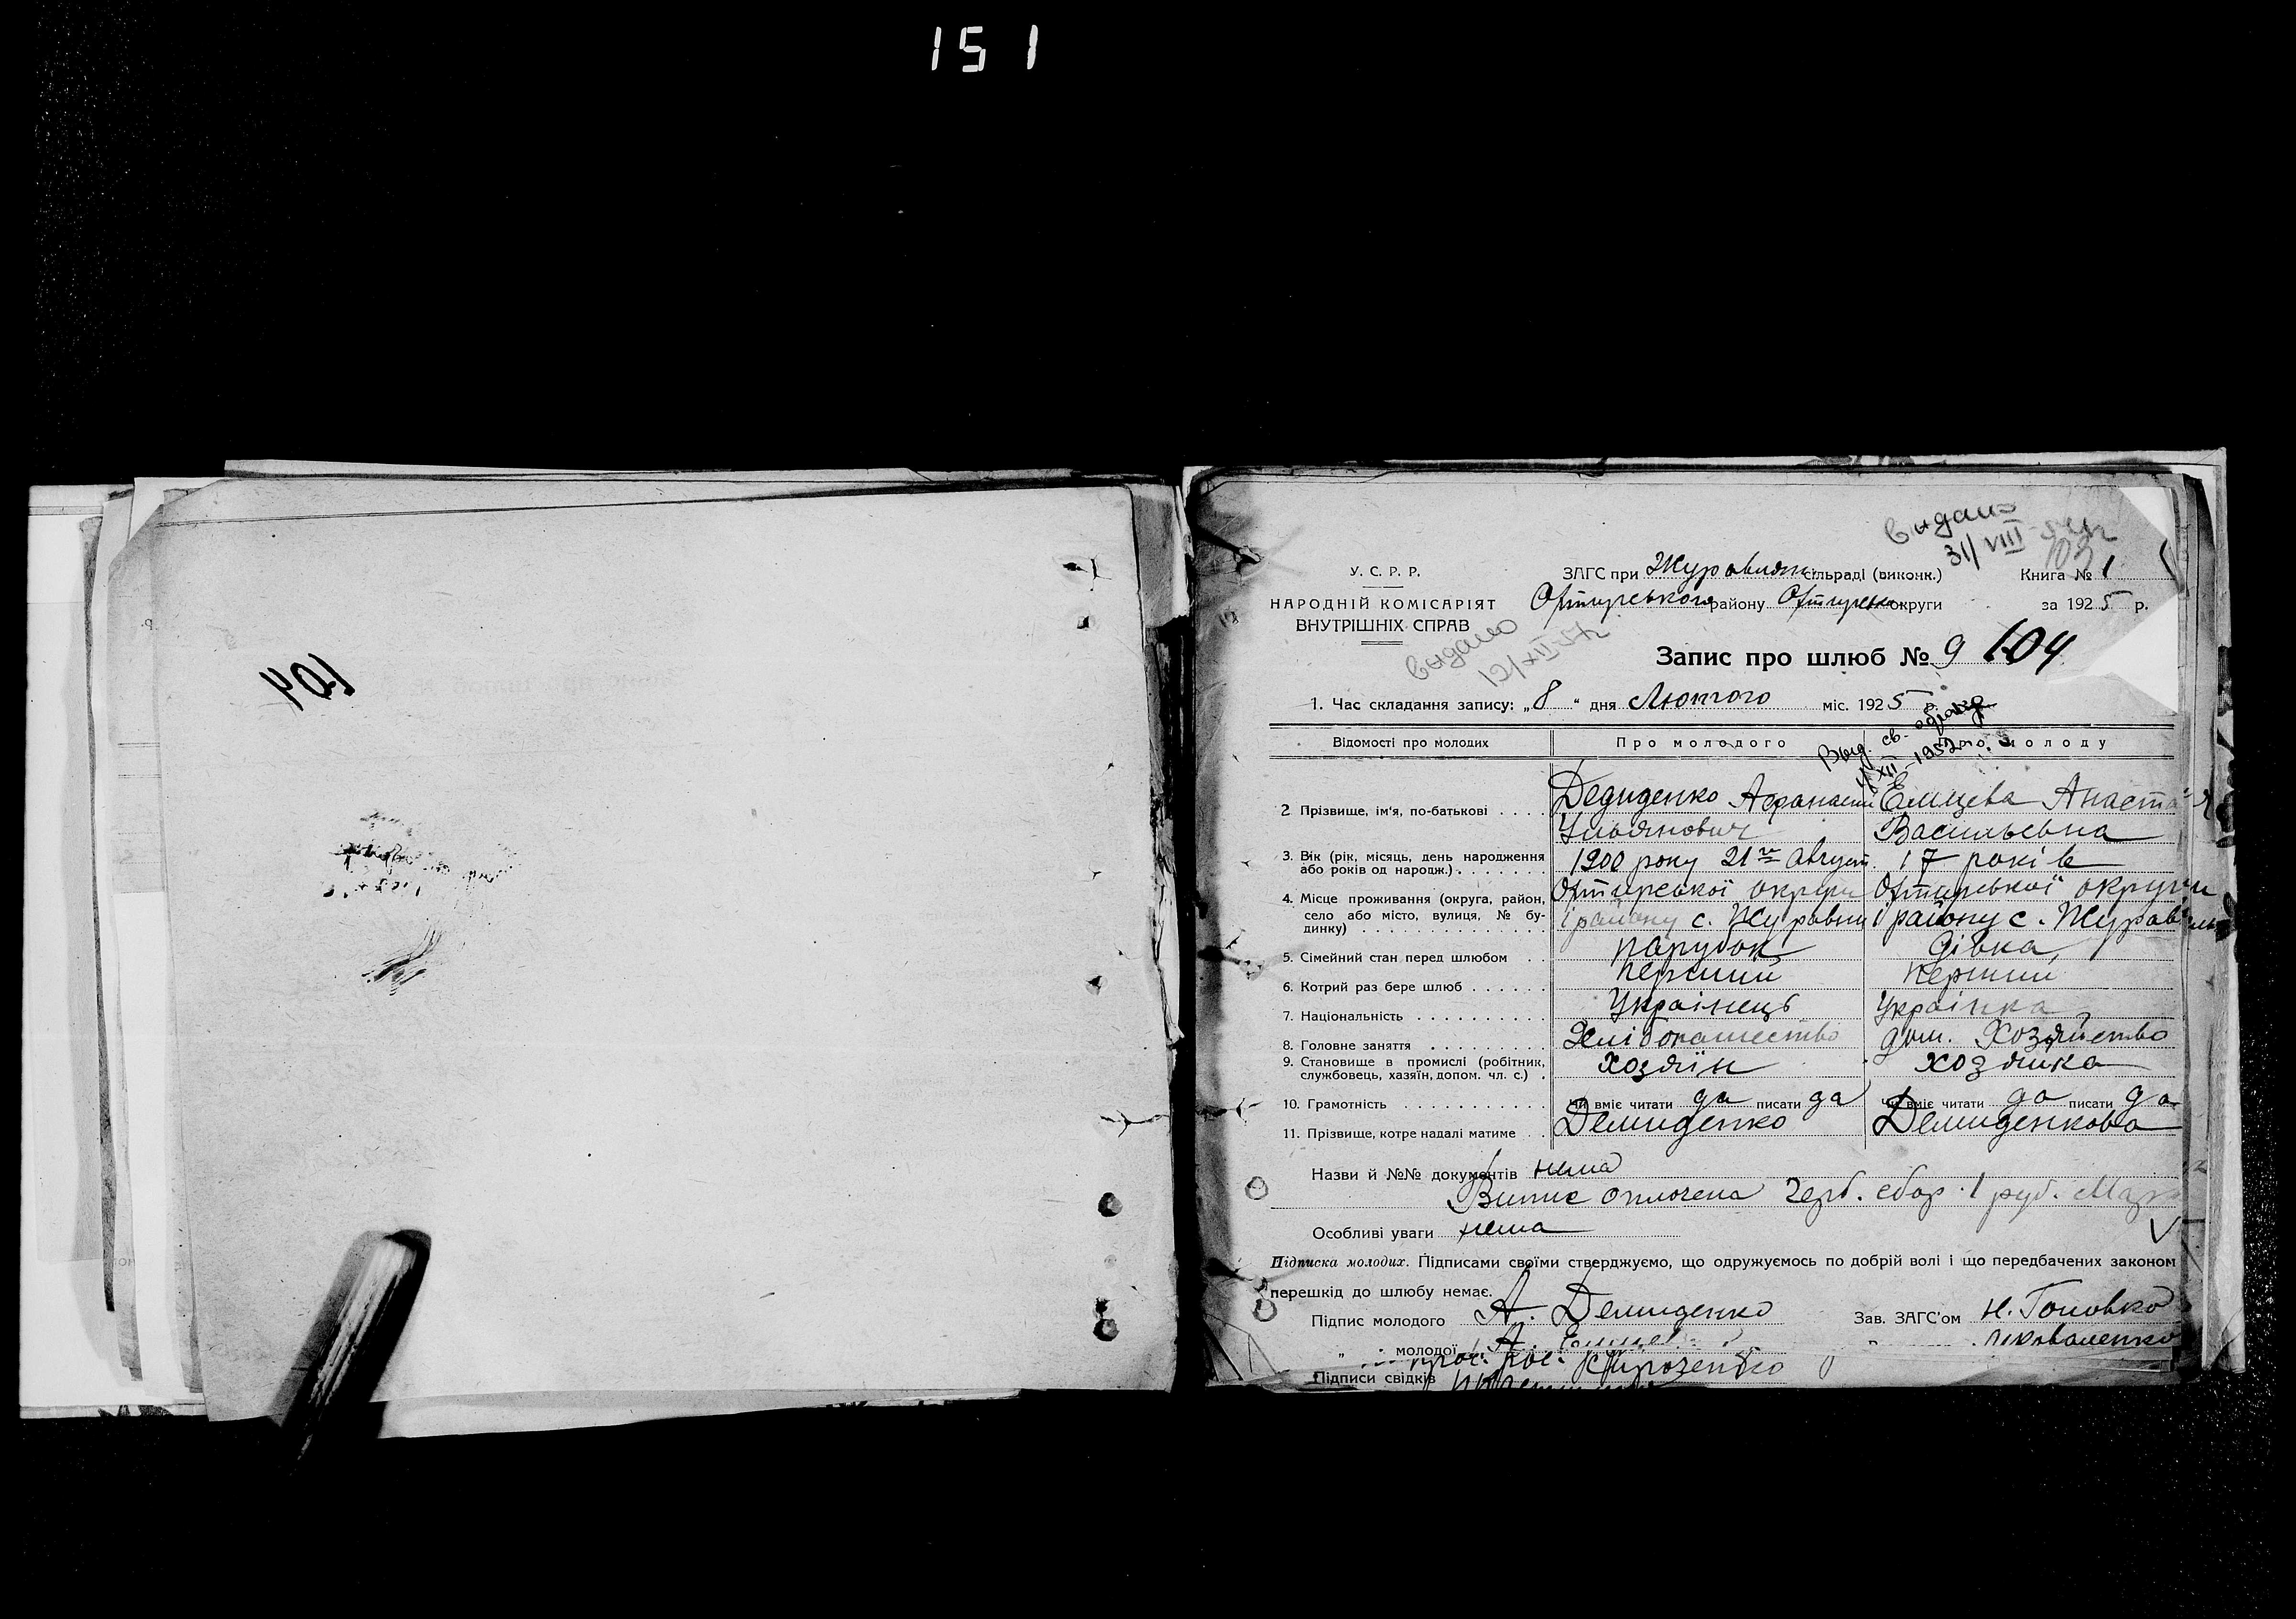 151
104
Выдано
31/VIII
У. С. Р. Р.
НАРОДНІЙ КОМІСАРІЯТ
ВНУТРІШНІХ СПРАВ
ЗАГС при Журавлян. сільраді (виконк.)
Книга № 1
Охтирського району Охтирськ. округи
за 1925 р.
Выдано
12/XII-57г
Запис про шлюб № 9 104
1. Час складання запису: „8“ дня Лютого міс. 1925 р.
Выд. св.
XII-1952
Відомості про молодих
Про молодого
Про молоду
2 Прізвище, ім'я, по-батькові
Дедиденко Афанасий
Ульянович
Емцева Анаста
Васильевна
3. Вік (рік, місяць, день народження
або років од народж.)
1900 року 21го Август.
17 років
4. Місце проживання (округа, район,
село або місто, вулиця, № бу-
динку)
Охтирської округи
і району с. Журавни
Охтирської округи
і району с. Журав
5. Сімейний стан перед шлюбом
парубок
дівка
6. Котрий раз бере шлюб
перший
перший
7. Національність
Українець
Українка
8. Головне заняття
Хлібопашество
дом. Хозяйство
9. Становище в промислі (робітник,
службовець, хазяїн, допом. чл. с.)
хозяїн
хозяйка
10. Грамотність
Чи вміє читати да писати да
Чи вміє читати да писати да
11. Прізвище, котре надалі матиме
Демиденко
Демиденкова
Назви й №№ документів нема
Випис оплочена герб. сбор. 1 руб.
Особливі уваги нема
Підписка молодих. Підписами своїми стверджуємо, що одружуємось по добрій волі і що передбачених законом
перешкід до шлюбу немає.
Підпис молодого А. Демиденко
Зав. ЗАГС'ом Н. Головко
„ молодої А.
Коваленко
Підписи свідків